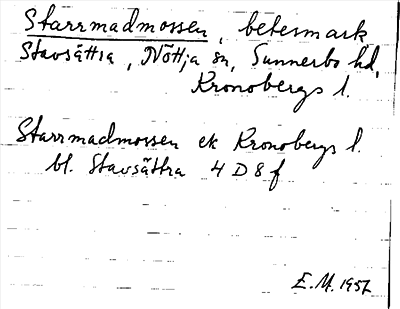 Starrmadmossen, betesmark,
Stavsättra, Nöttja sn, Sunnerbo hd,
Kronobergs l.
Starrmadmossen ek Kronobergs l.
bl. Stavsättra 4 D 8 f
E.M. 1957